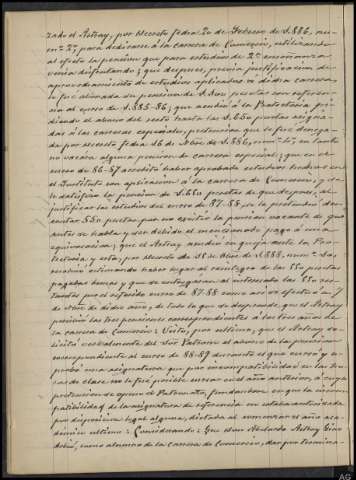 rado el Astray, por decreto fecha 20 de Febrero de 1.886, nú-
mº 2º, para dedicarse á la carrera de Comercio, utilizando
al efecto la pension que para estudios de 2ª enseñanza
venia disfrutando; que despues, prévia justificacion de
aprovechamiento de estudios aplicados á dicha carrera,
le fué abonada su pension de pesetas con referen-
cia al curso de 1.885-86; que acudió á la Protectoría pi-
diendo el abono del resto hasta las pesetas asigna-
das á las carreras especiales, pretension que le fué denega-
da por decreto fecha 26 de Nbre. de 1.886, en tanto
no vacara alguna pension de carrera especial; que en el
curso de 86-87 acreditó haber aprobado estudios hechos en
el Instituto con aplicacion á la carrera de Comercio, y se
le satisfizo la pension de pesetas que despues, al
justificar los estudios del curso de 87-88, se le pretendió des-
contar 550 pesetas, por no existir la pension vacante de que
antes se habla y ser debido el mencionado pago á una
equivocacion; que el Astray acudió en queja ante la Pro-
tectoría y esta, por decreto de de 1.888, se
resolvió estimando haber lugar al reintegro de las 550 pesetas
pagadas demas y que se entregaran al interesado las res-
tantes por el referido curso de 87-88 como así se efectuó en 7
de de dicho año, de todo lo que se desprende que el Astray
percibió las tres pensiones correspondientes á los tres años de
la carrera de Comercio: Visto, por ultimo, que el Astray so-
licita verbalmente del Sor. Patrono el abono de la pension
correspondiente al curso de 88-89 durante el que cursó y a-
probó una asignatura que por incompatibilidad en las ho-
ras de clase no le fué posible cursar en el año anterior, á cuya
pretension se opone el Patronato, fundandose en que la incom-
patibilidad de la asignatura de referencia no estaba autorizada
por disposicion legal alguna, dictada al comenzar el año aca-
démico ultimo: Considerando: Que don Abelardo Astray
debió, como alumno de la carrera de Comercio, dar por termina-
AG